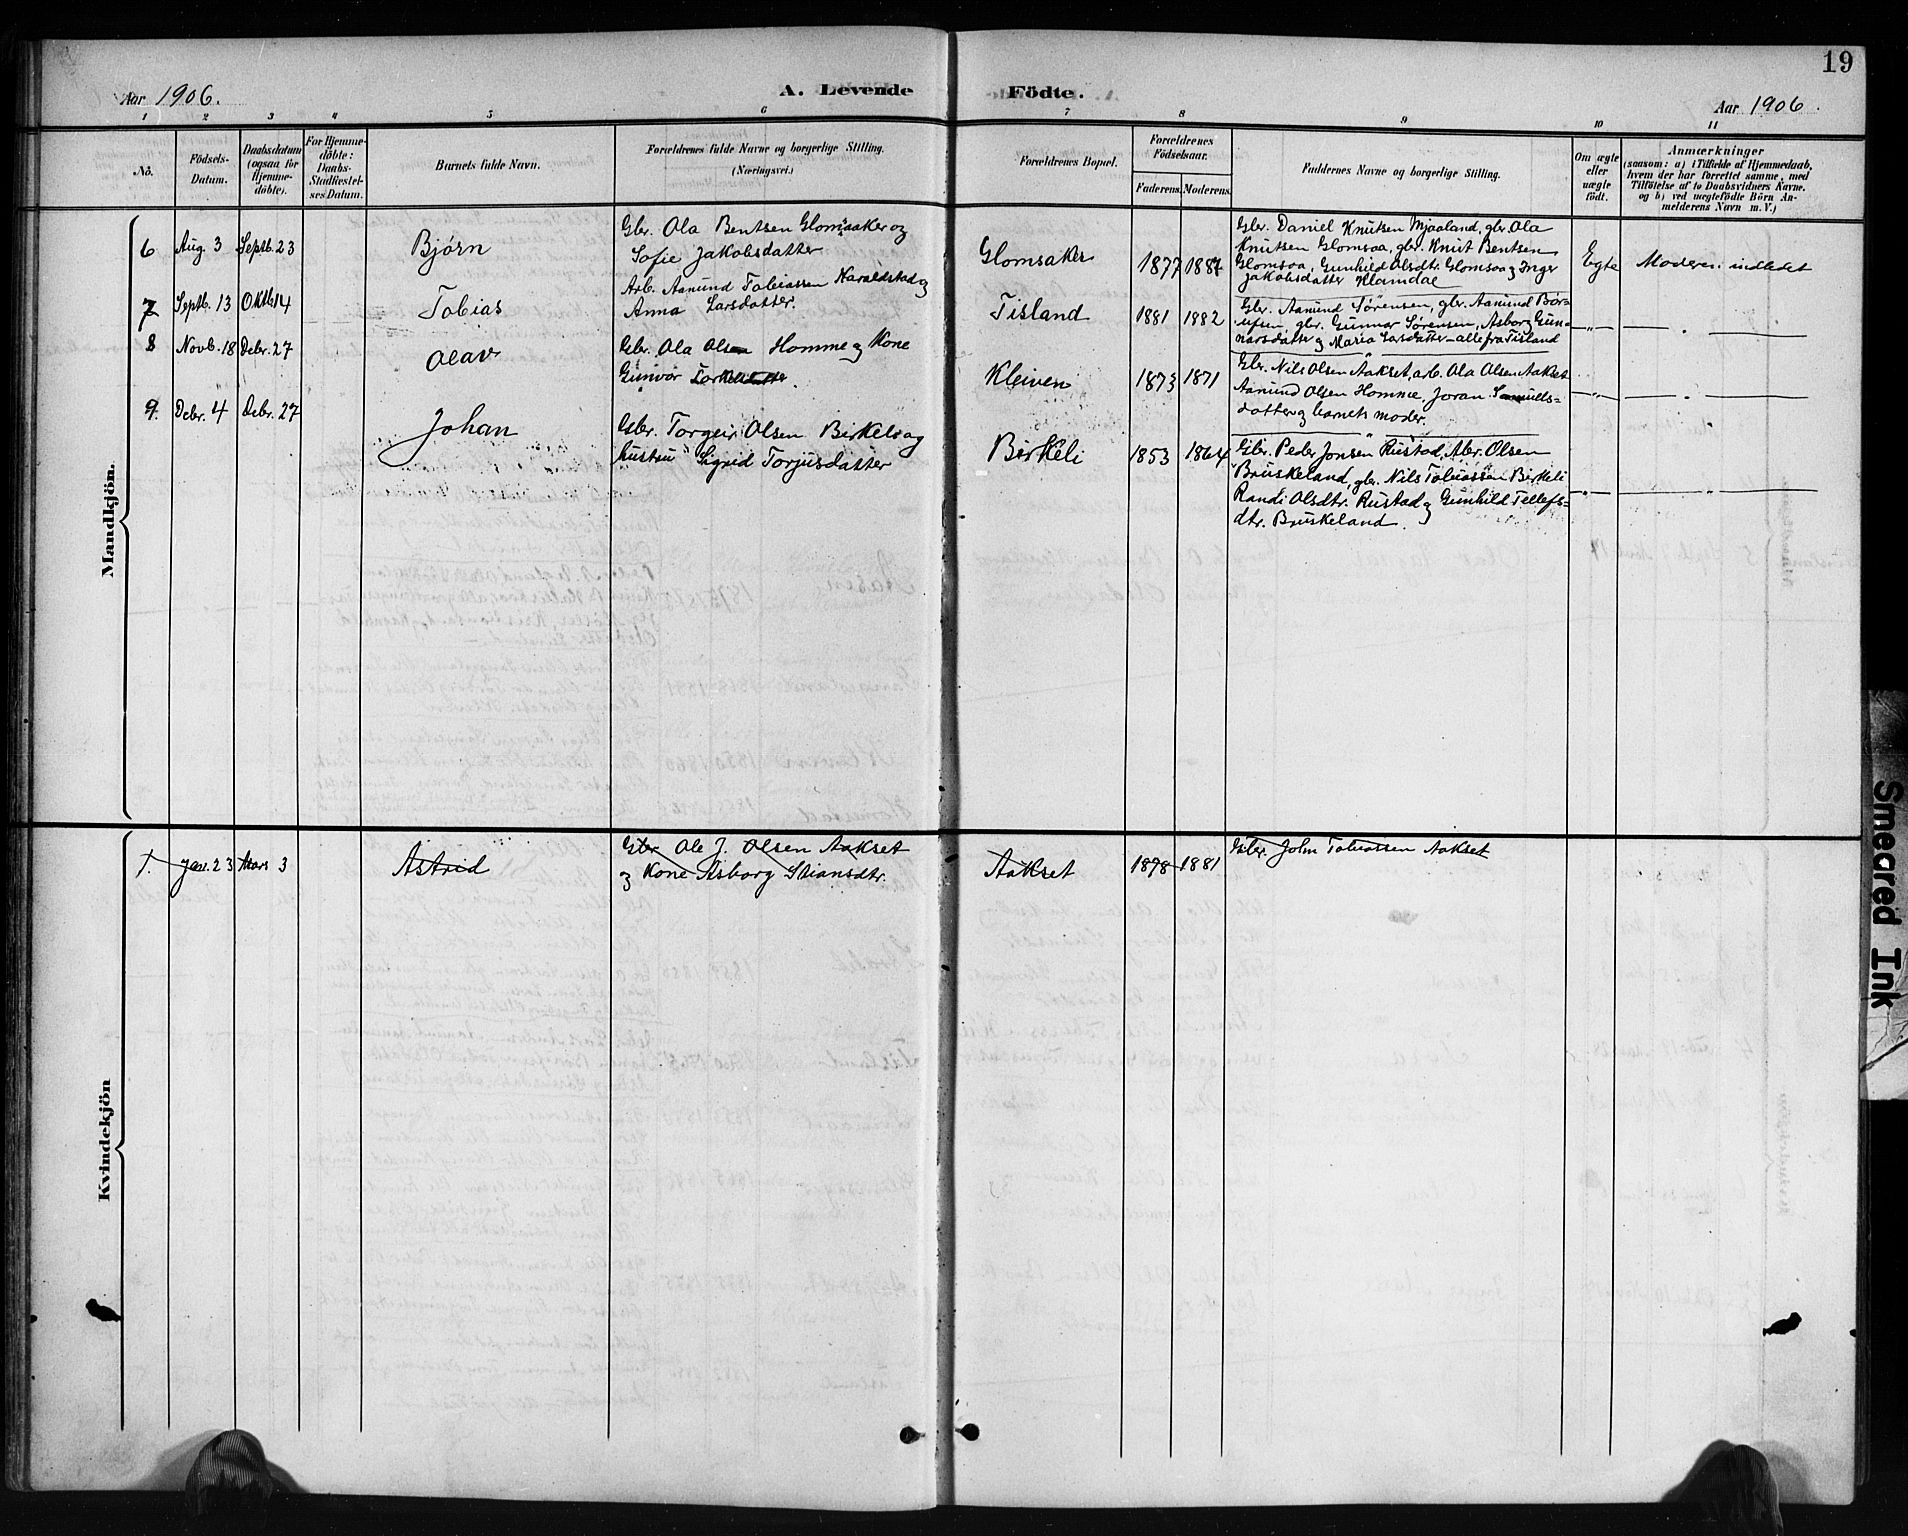 19
Aar 1906.
A. Levende Födte.
Aar 1906.
1 2 3 4 5 6 7 8 9 10 11
No.
Födsels-Datum.
Daabsdatum (ogsaa for Hjemme-döbte).
For Hjemme-döbte: Daabs-Stadfæstel-ses Datum.
Barnets fulde Navn.
Forældrenes fulde Navne og borgerlige Stilling. (Næringsvei.)
Forældrenes Bopæl.
Forældrenes Födselsaar.
Faderens. Moderens.
Faddernes Navne og borgerlige Stilling.
Om ægte eller uægte födt.
Anmærkninger
(saasom: a) i Tilfælde af Hjemmedaab,
hvem der har forrettet samme, med
Tilföielse af to Daabsvidners Navne.
og b) ved uægtefödte Börn An-
melderens Navn m. V.)
Mandkjön.
6 Aug. 3 Septb. 23 Bjørn
Gbr. Ola Bentsen Glomsaker og
Sofie Jakobsdatter
Glomsaker 1877 1887
Gbr. Daniel Knutsen Mjaaland, gbr. Ola
Knutsen Glomsaa, gbr. Knut Bentsen
Glomsaa, Gunhild Olsdtr. Glomsaa og Inger
Jakobsdatter Klamdal
Egte Moderen indledet
7 Septb. 13 Oktb. 14 Tobias
Arb. Aanund Tobiassen Haraldstad og
Anna Larsdatter.
Tisland 1881 1882
Gbr. Aanund Sørensen, gbr. Aanund Bör-
ufsen, gbr. Gunnar Sørensen, Asborg Gun-
narsdatter og Maria Larsdatter - alle fra Tisland
— " — — " —
8 Novb. 18 Debr. 27 Olav
Gbr. Ola Olsen Homme og Kone
Gunvor
Kleiven 1873 1871
Gbr. Nils Olsen Aakset, arb. Ola Olsen Aakset
Aanund Olsen Homme, Joran Samuels-
datter og barnets moder.
— " — — " —
9. Debr. 4 Debr. 27 Johan
Gbr. Torgeir Olsen Birkeli og
hustru Sigrid Torjusdatter
Birkeli 1853 1864
Gbr. Peder Jonsen Rustad, Abr. Olsen
Bruskeland, gbr. Nils Tobiassen Birkeli
Randi Olsdtr. Rustad og Gunhild Tellefs-
dtr. Bruskeland.
— " — — " —
Kvindekjön
1. Jan. 23 Mars 3 Astrid
Gbr. Ole J. Olsen Aakset
og Kone Asborg Stiansdtr.
Aakset 1878 1881
Gbr. John Tobiassen Aakset
Smeared Ink